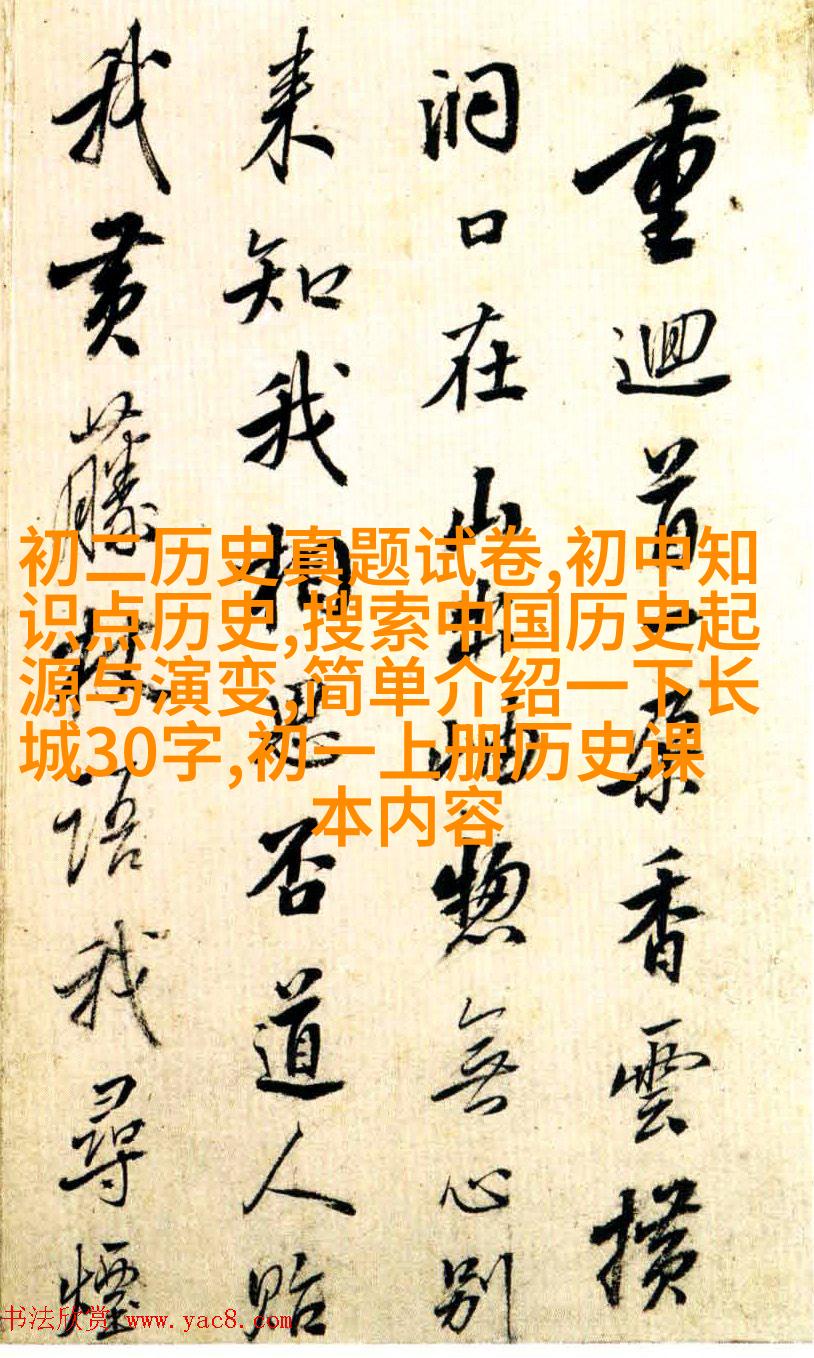 重迴首一朵香雲
洞口在山出岫惣無心別
来知我相思否道人貽
我黄藤語我尋煙
初二历史真题试卷,初中知
识点历史,搜索中国历史起
源与演变,简单介绍一下长
城30字,初一上册历史课
本内容
书法欣赏 www.yac8.com